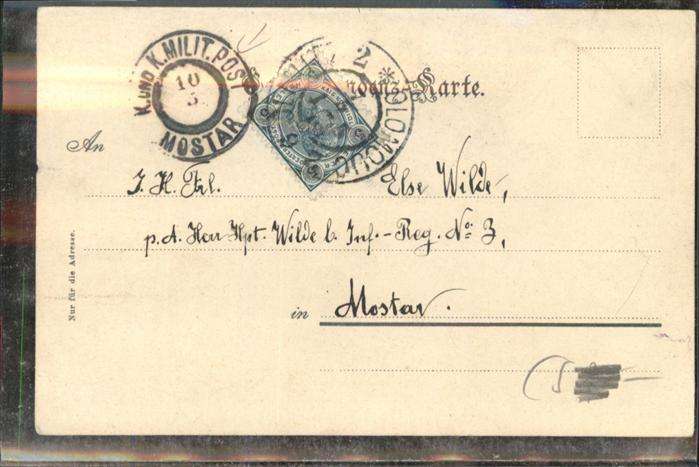 K. UND K. MILIT. POST
10
5
MOSTAR
OLOMOUC
2
Karte.
An
I. H. Frl. Else Wilde,
p. A. Herr Hpt. Wilde b. Inf.-Reg. No. 3,
in Mostar.
Nur für die Adresse.
5